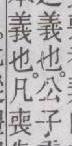 義也。公子
義也。凡喪